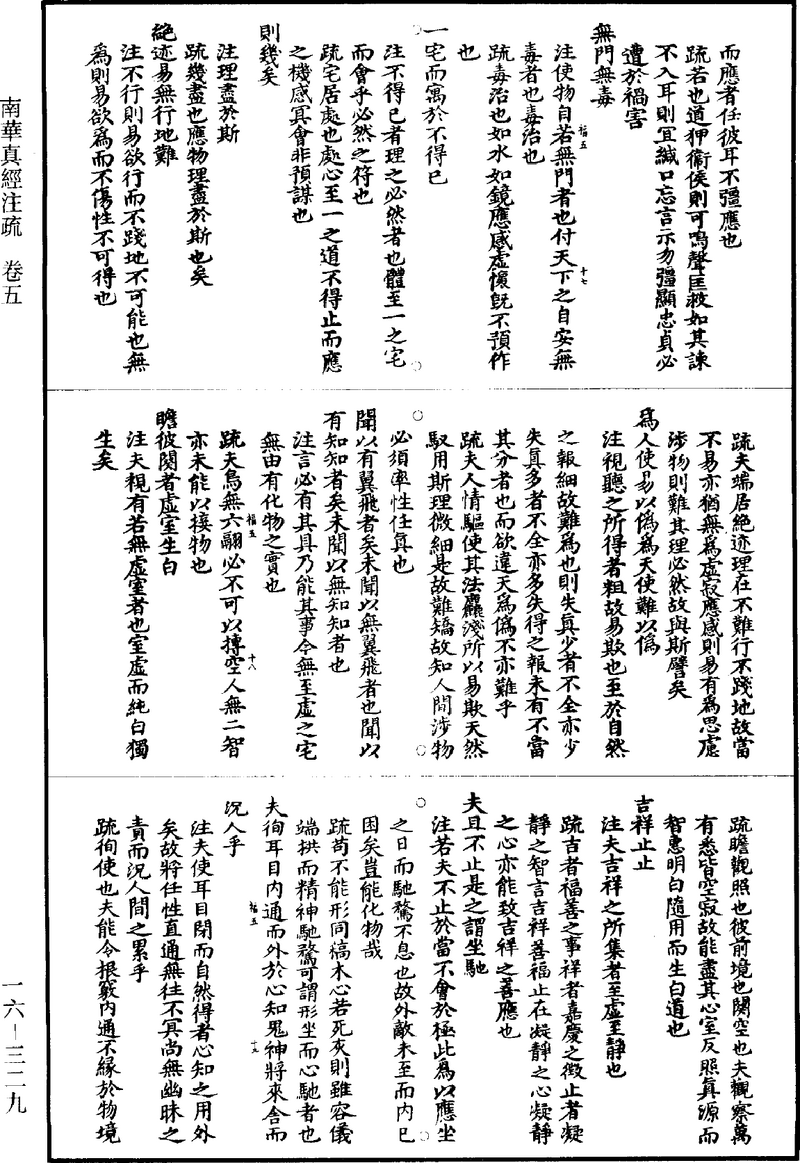 南華真經注疏　卷五
而應者任彼耳不彊應也
疏若也道狎衛侯則可鳴聲匡救如其諫
不入耳則宜緘口忘言示勿彊顯忠貞必
遭於禍害
無門無毒
注使物自若無門者也付天下之自安無
毒者也毒治也
疏毒治也如水如鏡應感虛懷既不預作
也
一宅而寓於不得已
注不得已者理之必然者也體至一之宅
而會乎必然之符也
疏宅居處也處心至一之道不得止而應
之機感冥會非預謀也
則幾矣
注理盡於斯
疏幾盡也應物理盡於斯也矣
絕迹易無行地難
注不行則易欲行而不踐地不可能也無
為則易欲為而不傷性不可得也
疏夫端居絕迹理在不難行不踐地故當
不易亦猶無為虛寂應感則易有為思慮
涉物則難其理必然故與斯譬矣
為人使易以偽為天使難以偽
注視聽之所得者粗故易欺也至於自然
之報細故難為也則失真少者不全亦少
失真多者不全亦多失得之報未有不當
其分者也而欲違天為偽不亦難乎
疏夫人情驅使其法麤淺所以易欺天然
馭用斯理微細是故難矯故知人間涉物
必須率性任真也
聞以有翼飛者矣未聞以無翼飛者也聞以
有知知者矣未聞以無知知者也
注言必有其具乃能其事今無至虛之宅
無由有化物之實也
疏夫鳥無六翮必不可以摶空人無二智
亦未能以接物也
瞻彼闋者虛室生白
注夫視有若無虛室者也室虛而純白獨
生矣
疏瞻觀照也彼前境也闋空也夫觀察萬
有悉皆空寂故能盡其心室反照真源而
智惠明白隨用而生白道也
吉祥止止
注夫吉祥之所集者至虛至靜也
疏吉者福善之事祥者嘉慶之徵止者凝
靜之智言吉祥善福止在凝靜之心凝靜
之心亦能致吉祥之善應也
夫且不止是之謂坐馳
注若夫不止於當不會於極此為以應坐
之日而馳騖不息也故外敵未至而內已
困矣豈能化物哉
疏苟不能形同槁木心若死灰則雖容儀
端拱而精神馳騖可謂形坐而心馳者也
夫徇耳目內通而外於心知鬼神將來舍而
況人乎
注夫使耳目閉而自然得者心知之用外
矣故將任性直通無往不冥尚無幽昧之
責而況人間之累乎
疏徇使也夫能令根竅內通不緣於物境
一六—三二九